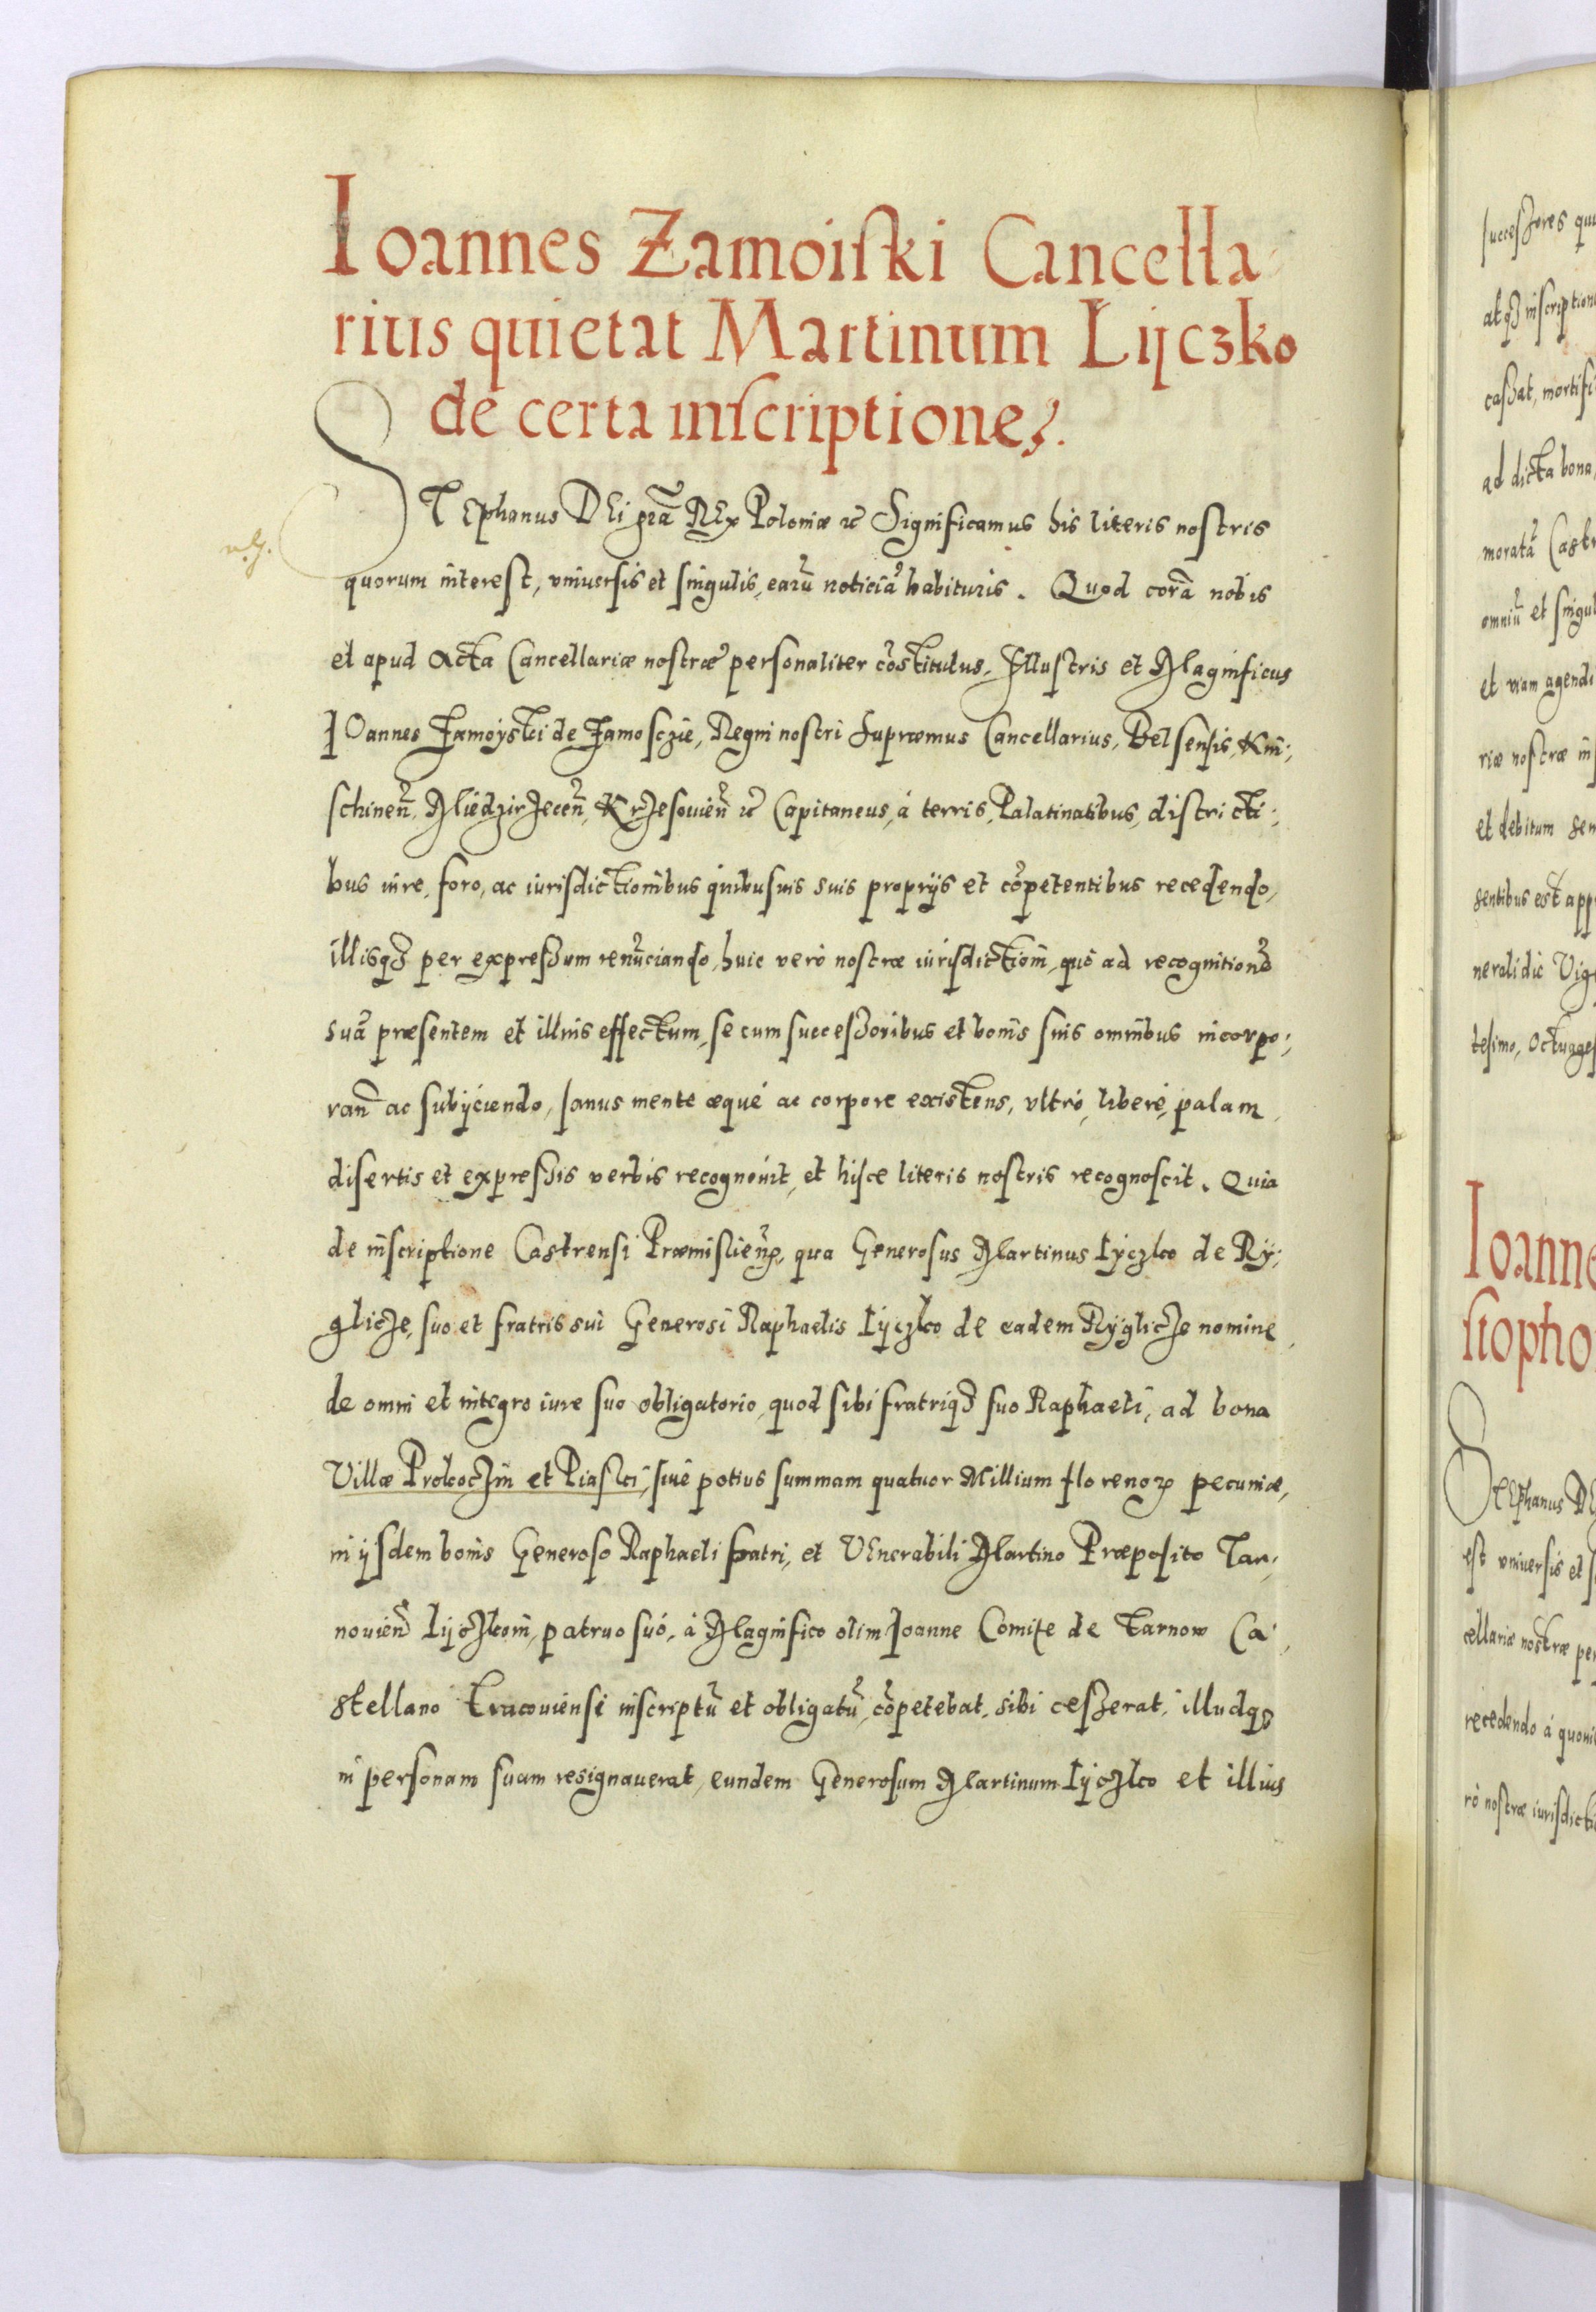 Ioannes Zamoiſki Cancella-
rius quietat Martinum Lijczko
de certa inſcriptione.
STEphanus DEi gr̃a REx Poloniæ ꝛc Significamus his literis noſtris
quorum intereſt, vniuerſis et ſingulis, earũ noticiã habituris. Quod corã nobis
et apud Acta Cancellariæ noſtræ personaliter cõstitutus, Illuſtris et Magnificus
IOannes Zamoyski de Zamoſczie, Regni noſtri Supræmus Cancellarius, Belſenſis, Kni-
ſchineñ, Miedzirzeceñ, Krzeſouieñ ꝛc Capitaneus, à terris, Palatinatibus, diſtricti-
bus iure, foro, ac iuriſdictionibus quibuſuis suis proprijs et cõpetentibus recedendo,
illisqꝫ per expreſsum renũciando, huic verò noſtræ iuriſdictioni, quò ad recognitionẽ
suã præsentem et illius effectum, ſe cum ſucceſsoribus et bonis ſuis omnibus incorpo-
rañ ac ſubijciendo, ſanus mente æquè ac corpore existens, vltrò, liberè, palam
diſertis et expreſsis verbis recognouit, et hiſce literis noſtris recognoſcit. Quia
de inſcriptione Castrensi Præmiſlieñ, qua Generosus Martinus Lyczko de Ry-
glicze, ſuo et fratris sui Generosi Raphaelis Lyczko de eadem Ryglicze nomine
de omni et integro iure ſuo obligatorio, quod ſibi fratriqꝫ ſuo Raphaeli, ad bona
Villæ Prokoczin et Piaſki, ſiue potius summam quatuor Millium florenoꝝ pecuniæ,
in ijſdem bonis Generoſo Raphaeli fratri, et VEnerabili Martino Præpoſito Tar-
nouieñ Lijczkoni, patruo ſuo, à Magnifico olim Ioanne Comite de Tarnow Ca-
stellano Cracouiensi inſcriptũ et obligatũ, cõpetebat, sibi ceſserat, illudqꝫ
in personam ſuam resignauerat, eundem Generoſum Martinum Lijczko et illius
ſucceſsores
atqꝫ
caſsat,
ad dicta bona
omniũ et
et viam agendi
riæ noſtræ in
et debitum
sentibus est
tesimo,
Ioanne
STEphanus DE
est vniuerſis et
cellariæ nostræ
recedendo à
rò noſtræ